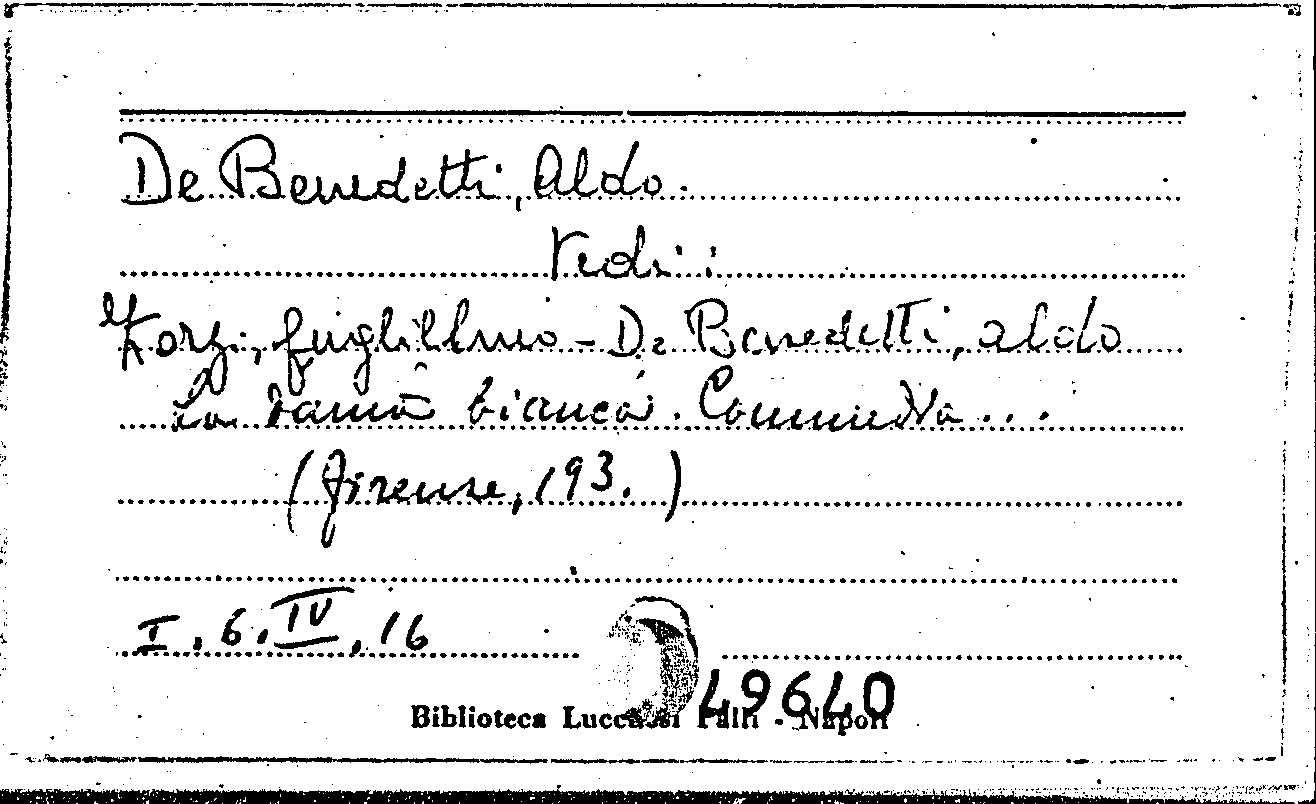 De Benedetti, Aldo.
Vedi:
Zorzi, Guglielmo - De Benedetti, Aldo
La dama bianca. Commedia...
(Firenze, 193. )
I. 6. IV. 16
49640
Biblioteca Lucchesi Palli - Napoli